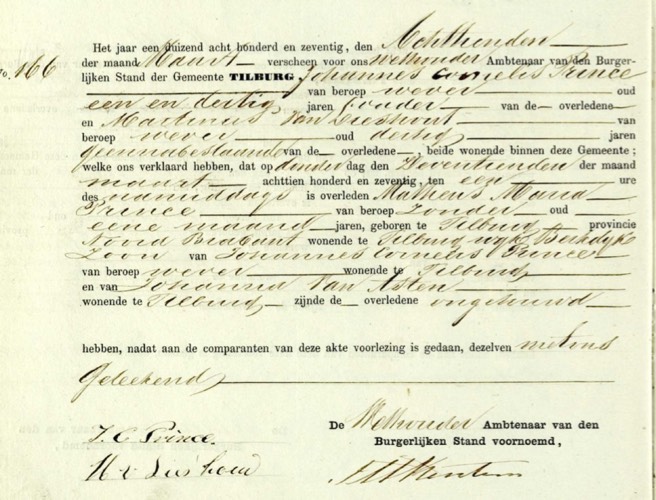 Het jaar een duizend acht honderd en zeventig, den Achttienden
der maand Maart verscheen voor ons Wethouder Ambtenaar van den Burger-
No. 166 lijken Stand der Gemeente TILBURG, Johannes Cornelis Prince
van beroep wever oud
een en dertig jaren Vader van de overledene
en Martinus van Dieshout van
beroep wever oud dertig jaren
geennabestaande van de overledene, beide wonende binnen deze Gemeente;
welke ons verklaard hebben, dat op donderdag den Zeventienden der maand
maart achttien honderd en zeventig, ten een ure
des namiddags is overleden Matheus Maria
Prince van beroep Zonder oud
eene maand jaren, geboren te Tilburg provincie
Noord Brabant wonende te Tilburg wijk Berkdijk
Zoon van Johannes Cornelis Prince
van beroep wever wonende te Tilburg
en van Johanna Van Asten
wonende te Tilburg zijnde de overledene ongehuwd
hebben, nadat aan de comparanten van deze akte voorlezing is gedaan, dezelven met ons
geteekend
De Wethouder Ambtenaar van den
Burgerlijken Stand voornoemd,
J. C. Prince